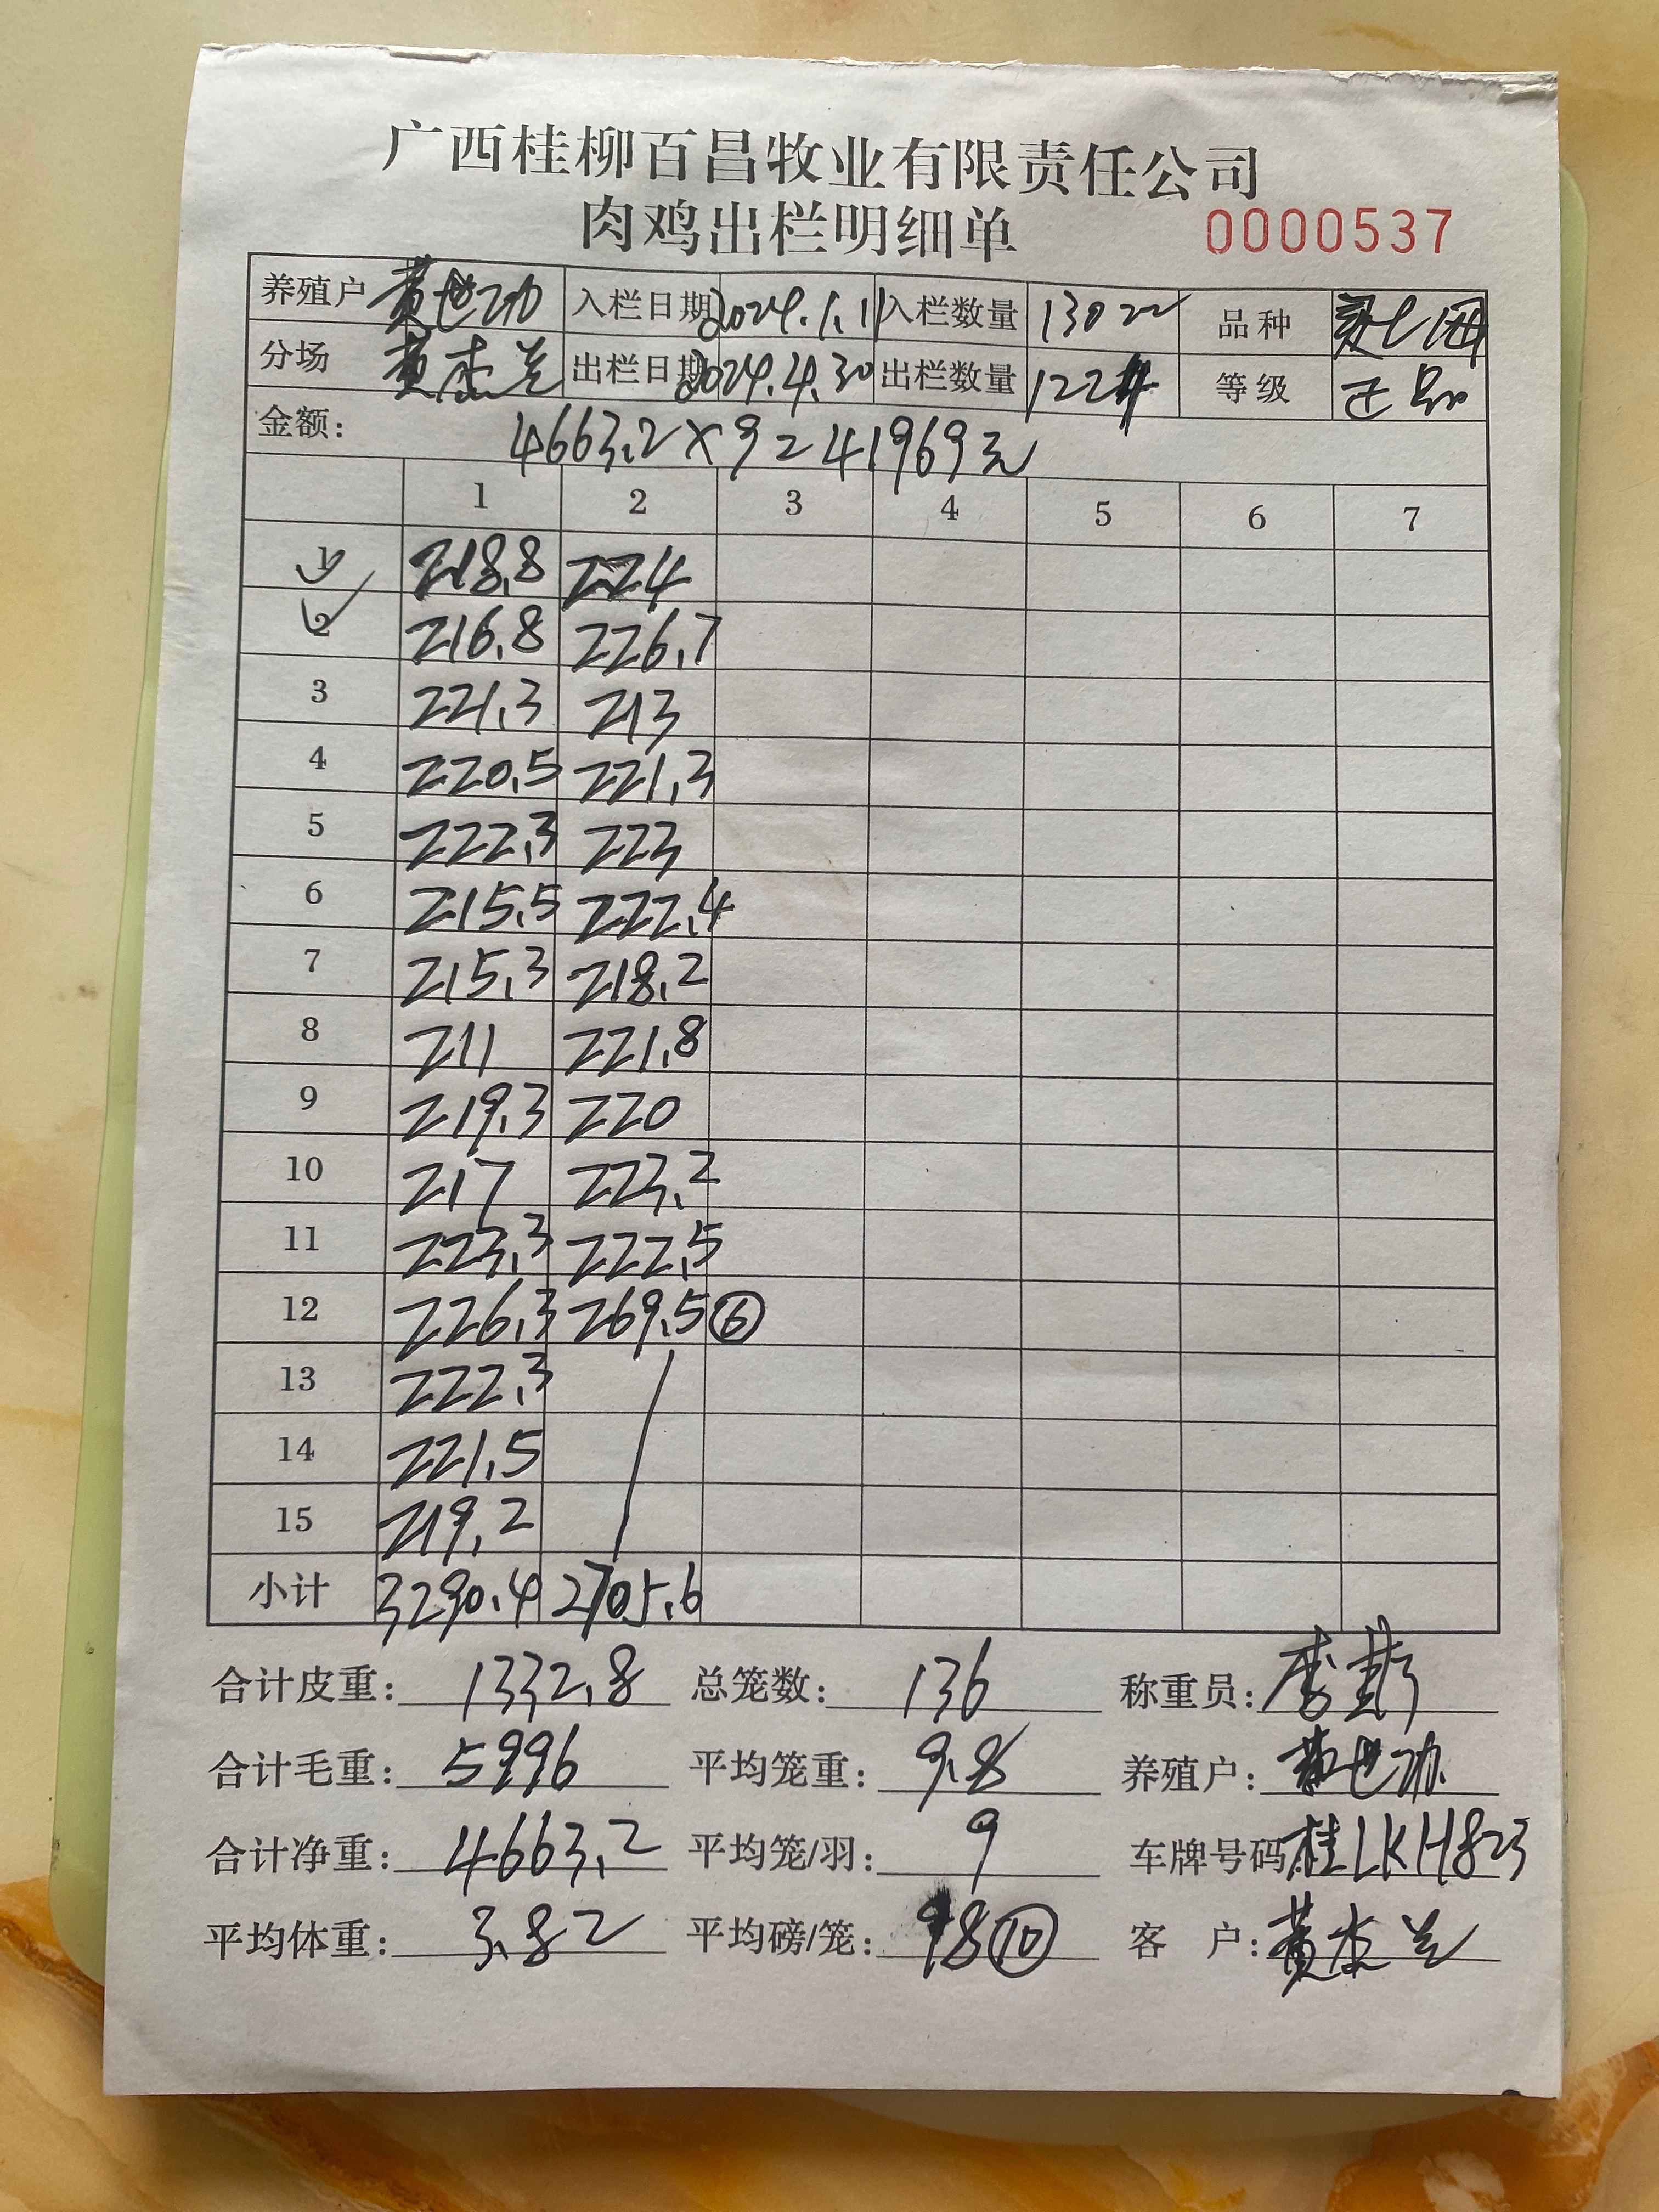 广西桂柳百昌牧业有限责任公司
肉鸡出栏明细单 0000537
养殖户 黄世功 入栏日期 2024.1.11 入栏数量 13022 品种
分场 黄杰兰 出栏日期 2024.4.30 出栏数量 等级 正品
金额: 4663.2×9=41969元
1 2 3 4 5 6 7
1 218.8 224
2 216.8 226.7
3 221.3 213
4 220.5 221.3
5 222.3 223
6 215.5 222.4
7 215.3 218.2
8 211 221.8
9 219.3 220
10 217 223.2
11 223.3 222.5
12 226.3 269.5 ⑥
13 222.3
14 221.5
15 219.2
小计 3290.4 2705.6
合计皮重: 1332.8 总笼数: 136 称重员:
合计毛重: 5996 平均笼重: 9.8 养殖户: 黄世功
合计净重: 4663.2 平均笼/羽: 9 车牌号码: 桂LKH823
平均体重: 3.82 平均磅/笼: 98⑩ 客户: 黄杰兰